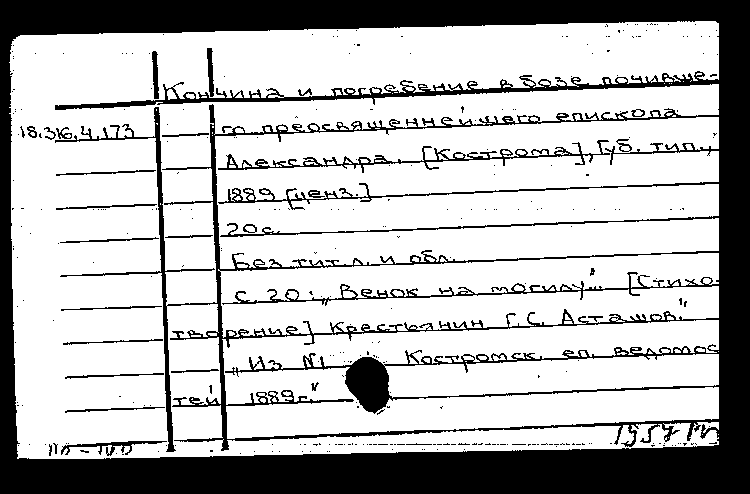 Кончина и погребение в бозе почивше-
18.316.4.173 го преосвященнейшего епископа
Александра. [Кострома], Губ. тип.,
1889 [ценз.]
20с.
Без тит. л. и обл.
с. 20: „Венок на могилу". [Стихо-
творение] Крестьянин Г. С. Асташов."
„Из №1 Костромск. еп. ведомос
тей 1889г."